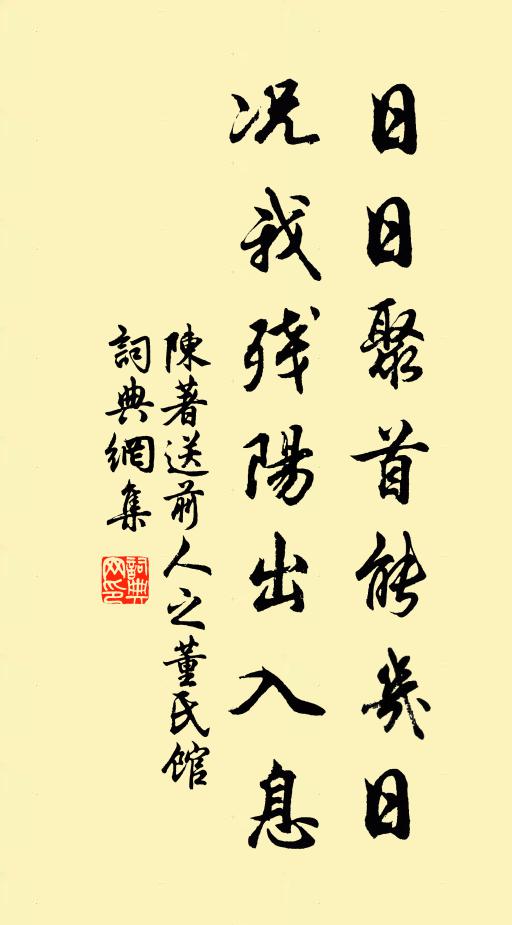 日日聚首能幾日
况我残陽出入息
陳著送前人之董氏館
詞典網集
詞典
网印